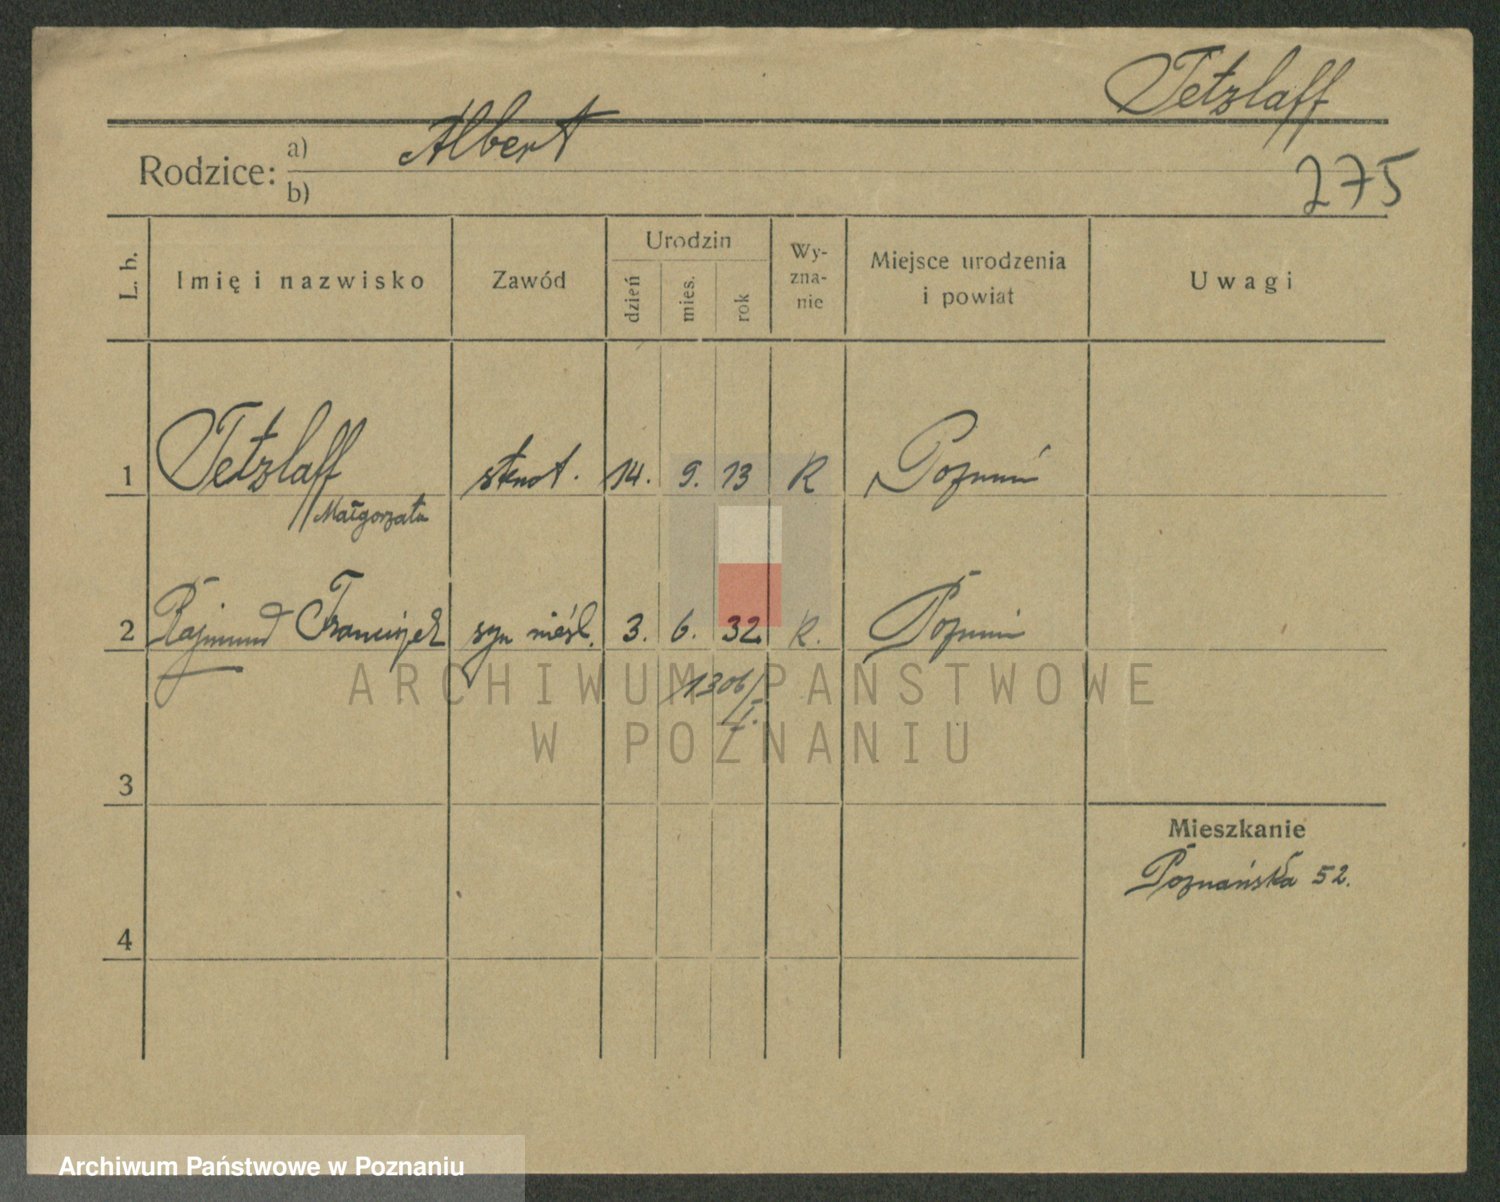 Tetzlaff
Rodzice: a) Albert
b)
275
L. b.
Imię i nazwisko
Zawód
Urodzin
dzień
mies.
rok
Wy-
zna-
nie
Miejsce urodzenia
i powiat
Uwagi
1 Tetzlaff 14. 9. 13 R Poznań
Małgorzata
2 Rajmund Franciszek syn nieśl. 3. 6. 32 R. Poznań
1306/I.
3
Mieszkanie
Poznańska 52.
4
ARCHIWUM PAŃSTWOWE
W POZNANIU
Archiwum Państwowe w Poznaniu